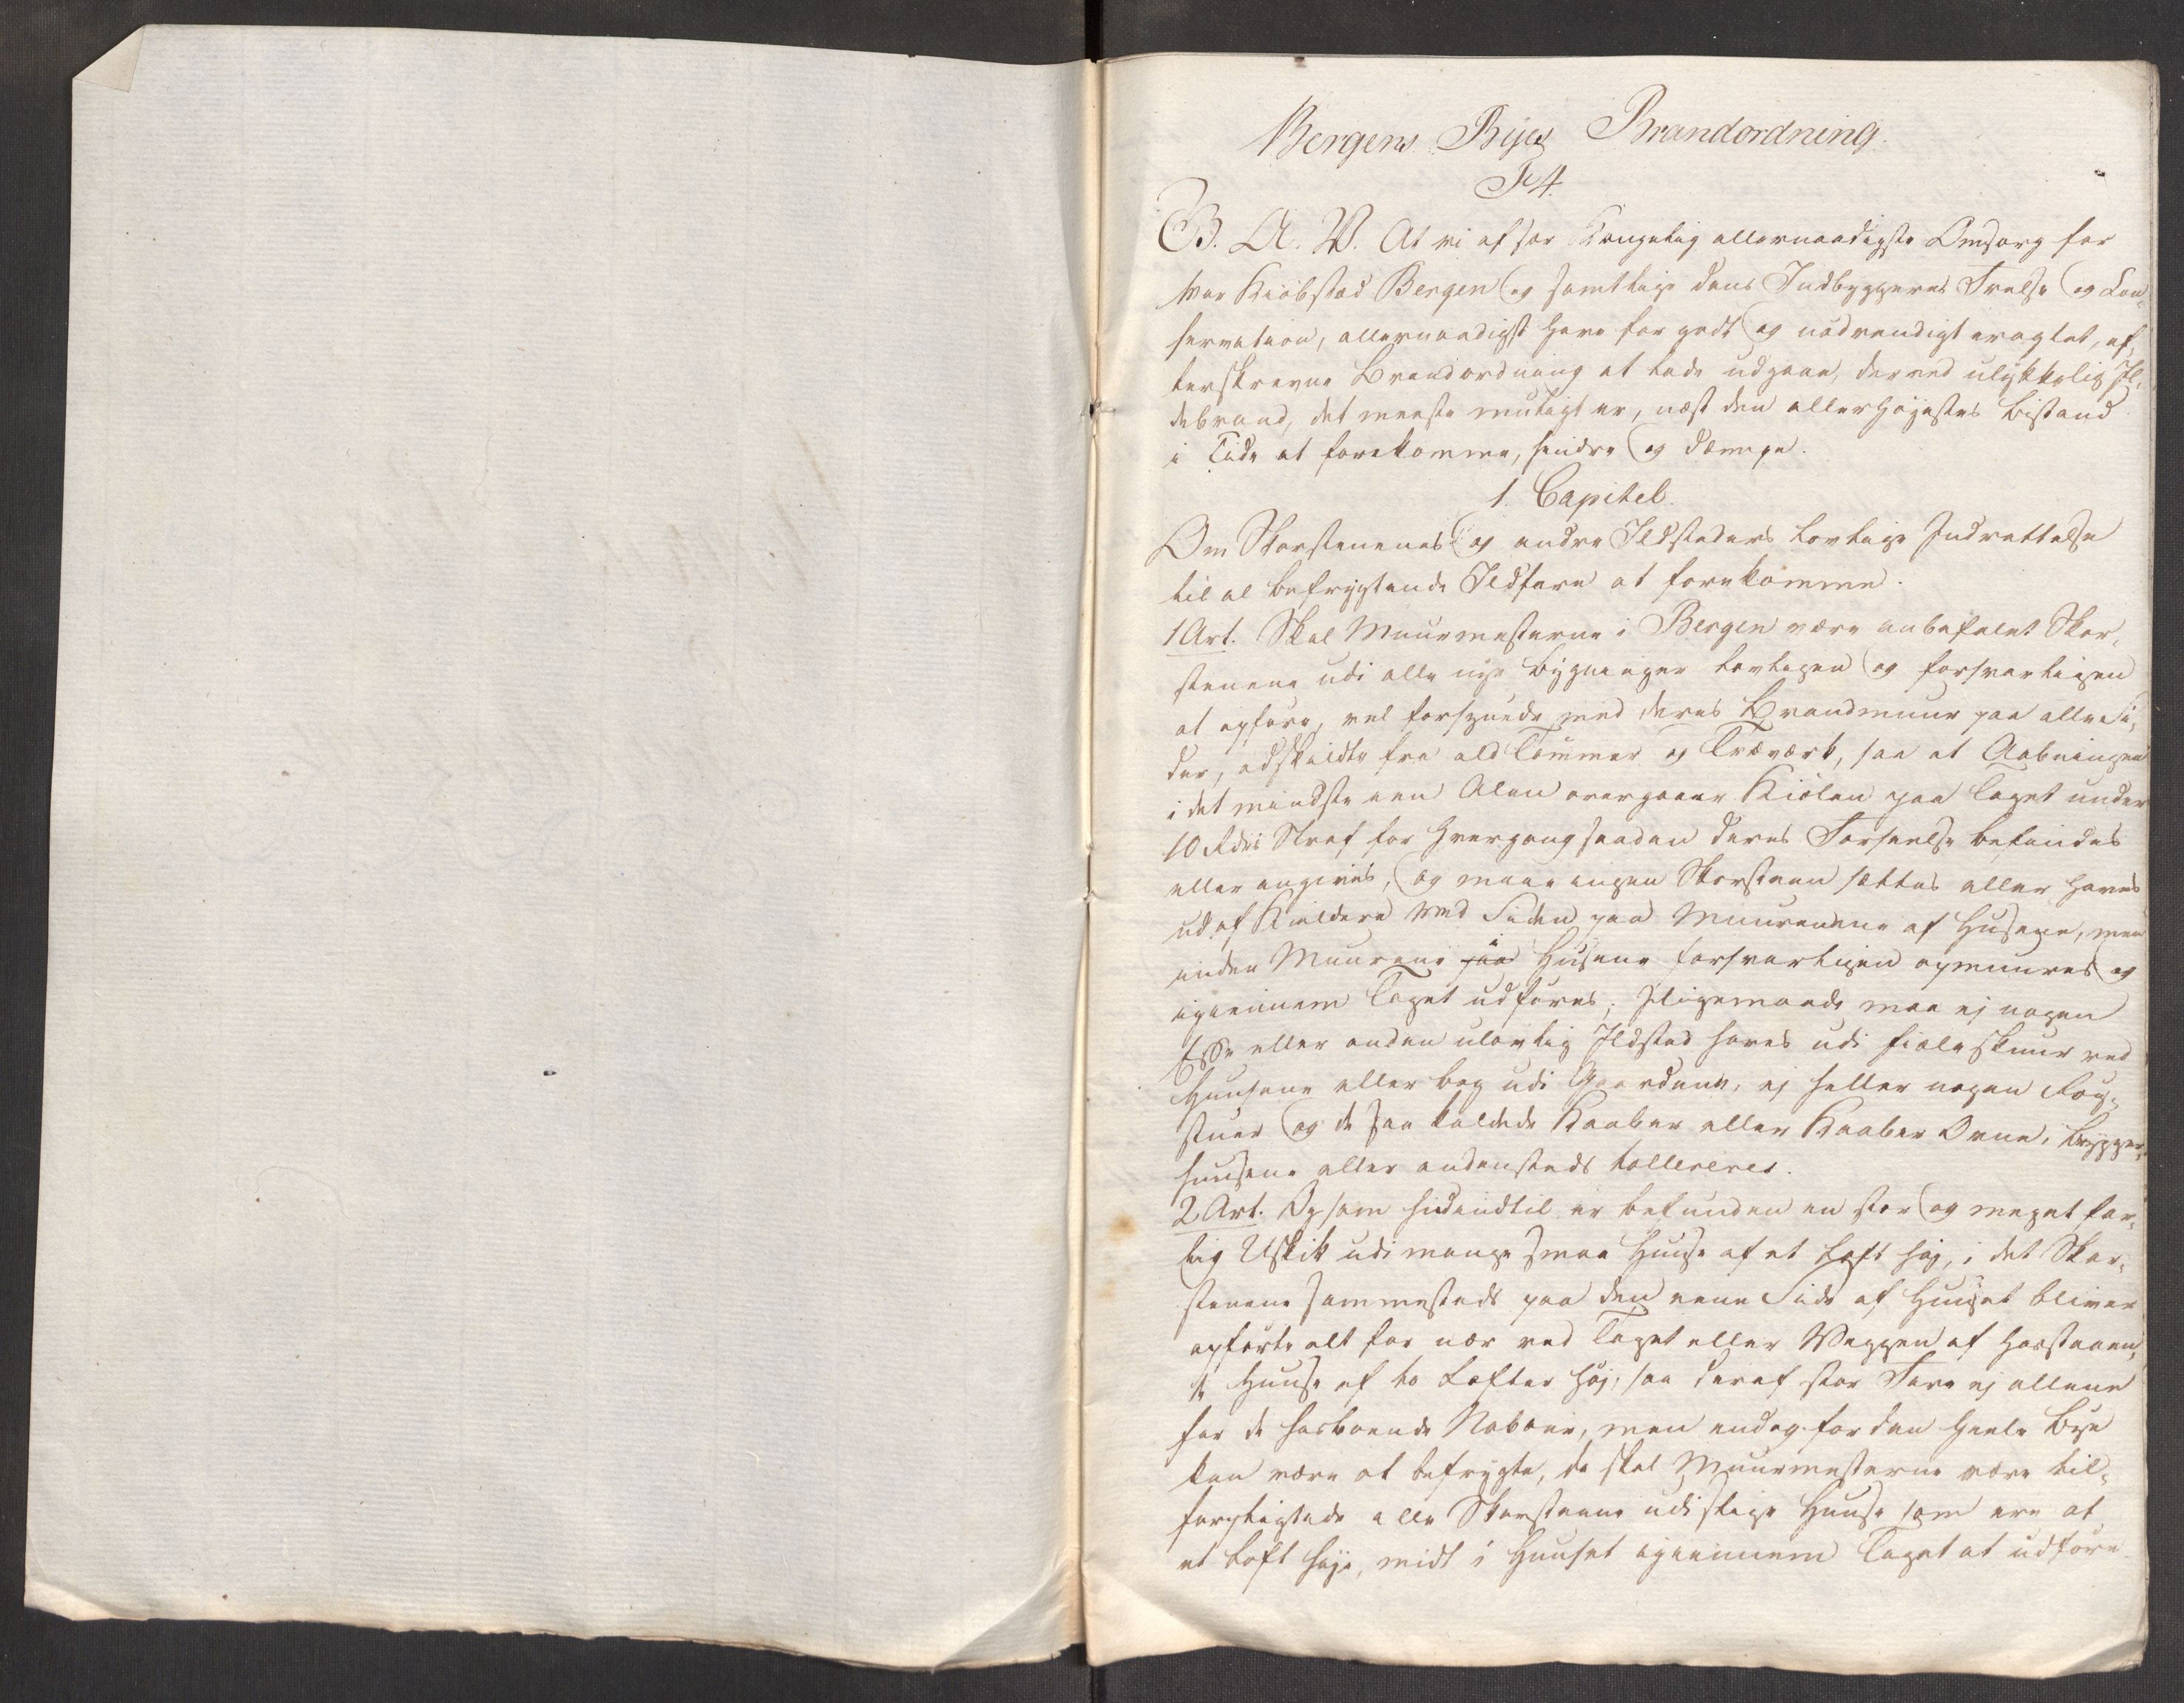 Bergens Byes Brandordning.
F 4.
G. A. V. At vi af sær Kongelig allernaadigste Omsorg for
vor Kiöbstæd Bergen og samtlige dens Indbyggeres Frelse og Con-
servation, allernaadigst have for godt og nödvendigt eragtet, ef-
terskrevne Brandordning at lade udgaae, derved ulykkelig Il-
debrand, det meeste mueligt er, næst den allerhöjestes Bistand
i Tide at forekomme, hindre og dæmpe.
1. Capitel.
Om Skorstenenes og andre Ildsteders lovlige Indrettelse
til al befrygtende Ildfare at forekomme.
1 Art. Skal Muurmesterne i Bergen være anbefalet Skor-
stenene udi alle nye Bygninger lovligen og forsvarligen
at opföre, vel forsynede med deres Brandmuur paa alle Si-
der, adskildte fra ald Tömmer og Træværk, saa at Aabningen
i det mindste een Alen overgaaer Kiölen paa Taget under
10 Rdrs Straf for hvergang saadan deres Forseelse befindes
eller angives, og maae ingen Skorsteen sættes eller haves
ud af Kieldere ved Siden paa Muurene af Husene, men
inden Muurene paa i Husene forsvarligen opmuures og
igiennem Taget udföres; Iligemaade maa ej nogen
Esse eller anden ulovlig Ildsted haves udi Fiæle skuur ved
Huusene eller bag udi Gaardene, ej heller nogen Rög-
stuer og de saa kaldede Kaaber eller Kaaber Ovne, i Brygger-
huusene eller andensteds tollereres.
2 Art. Og som hidindtil er befunden en stor og meget far-
lig Uskik udi mange smaa Huuse af et Loft höj, i det Skor-
stenene sammesteds paa den eene Side af Huuset bliver
opförte alt for nær ved Taget eller Væggen af hosstaaen-
de Huuse af to Lofter höj, saa deraf stor Fare ej allene
for de hosboende Naboer, men endog for den heele Bye
kan være at befrygte, da skal Muurmesterne være til-
forpligtede alle Skorstene udi slige Huuse som ere af
et Loft höje, midt i Huuset igiennem Taget at udföre